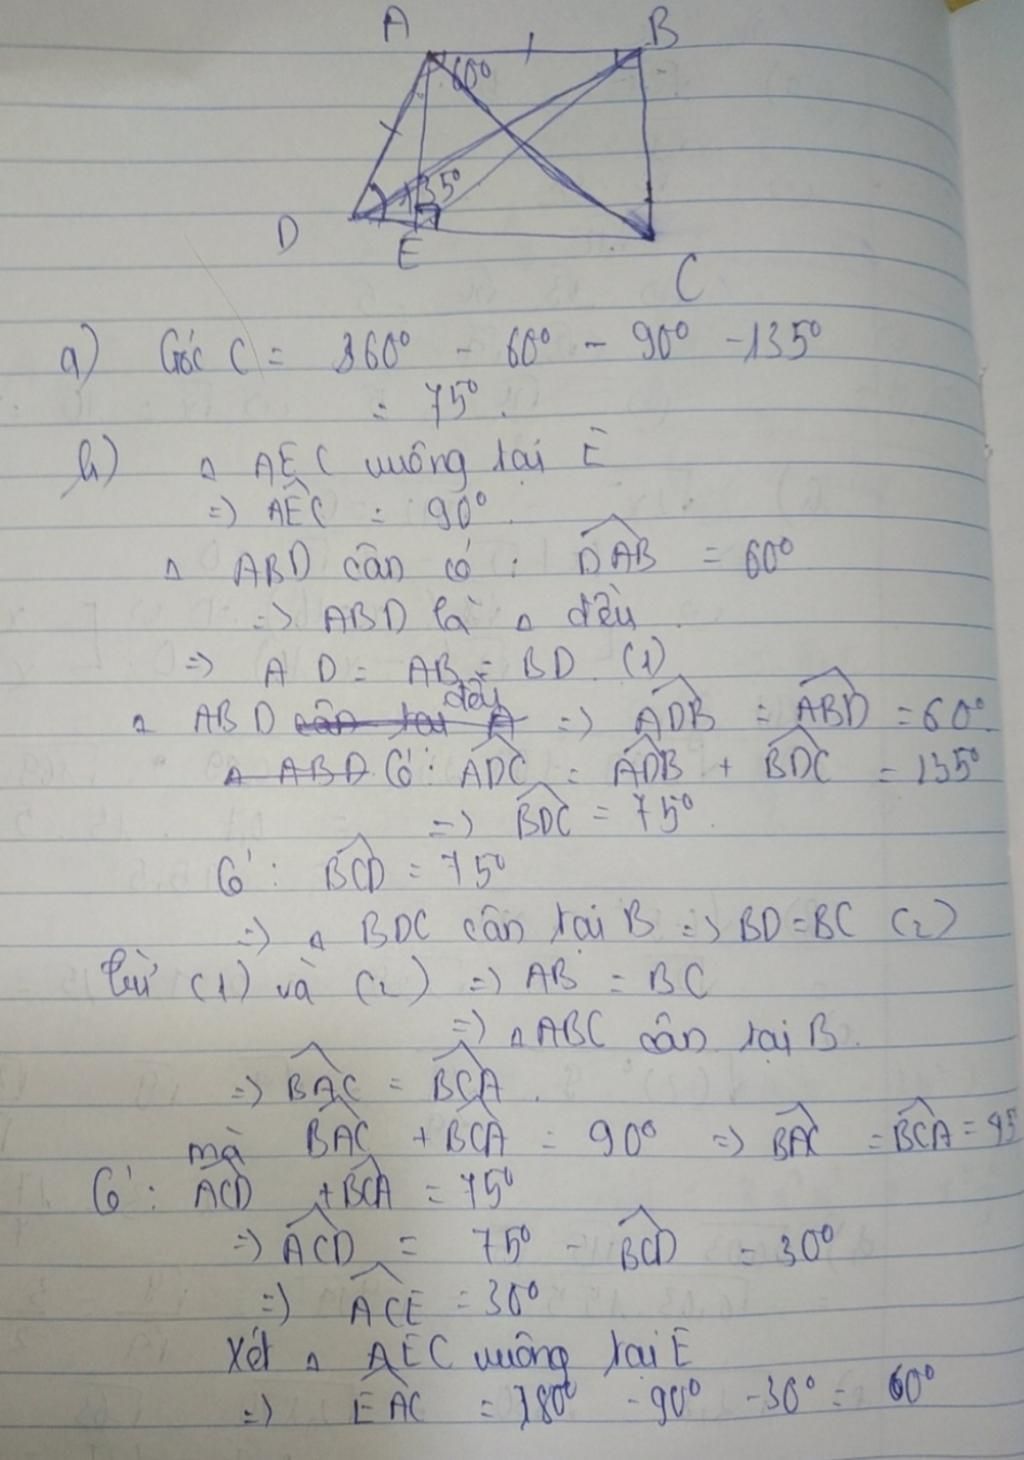 A B
60°
135°
D E C
a) Góc C = 360° - 60° - 90° - 135°
= 75°.
b) △ AEC vuông tại E
=> \widehat{AEC} = 90°.
△ ABD cân có : \widehat{DAB} = 60°
=> ABD là △ đều.
=> AD = AB = BD. (1)
△ ABD cân tại A đều => \widehat{ADB} = \widehat{ABD} = 60°.
△ ABD Có : \widehat{ADC} = \widehat{ADB} + \widehat{BDC} = 135°
=> \widehat{BDC} = 75°.
Có : \widehat{BCD} = 75°
=> △ BDC cân tại B => BD = BC (2)
Từ (1) và (2) => AB = BC
=> △ ABC cân tại B.
=> \widehat{BAC} = \widehat{BCA}.
mà \widehat{BAC} + \widehat{BCA} = 90° => \widehat{BAC} = \widehat{BCA} = 45
Có : \widehat{ACD} + \widehat{BCA} = 75°
=> \widehat{ACD} = 75° - \widehat{BCD} = 30°
=> \widehat{ACE} = 30°
Xét △ AEC vuông tại E
=> \widehat{EAC} = 180° - 90° - 30° = 60°